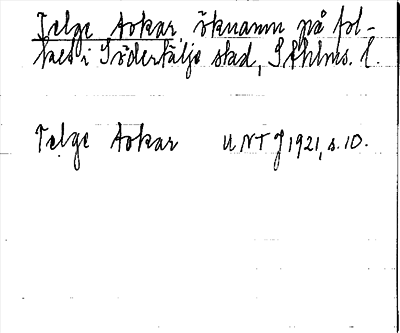 Telge Aokar, öknamn på fol-
ket i Södertälje stad, Sthlms. l.
Telge Aokar UNT J 1921, s. 10.